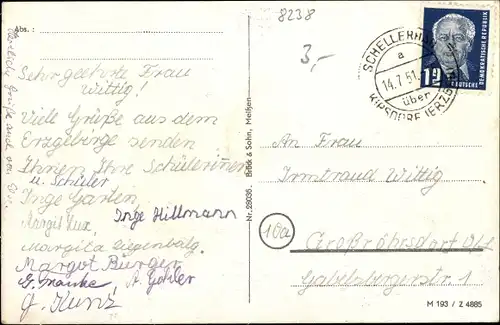 Abs.:
8238
3,-
Sehr geehrte Frau
Wittig!
Viele Grüße aus dem
Erzgebirge senden
Ihnen Ihre Schülerinnen
u. Schüler
Inge Garten
Margit Lux, Inge Hillmann
Margitta
Margot Burger
G. Franke, A. Gohler
G. Kunz
Herzliche Grüße auch von
Brück & Sohn, Meißen
Nr. 28036.
SCHELLERHAU
a
14.7.51
über
KIPSDORF (ERZGEB)
DEUTSCHE DEMOKRATISCHE REPUBLIK
12
DEUTSCHE
An Frau
Irmtraud Wittig
10a
Großröhrsdorf
Gabelsbergerstr. 1
M 193 / Z 4885